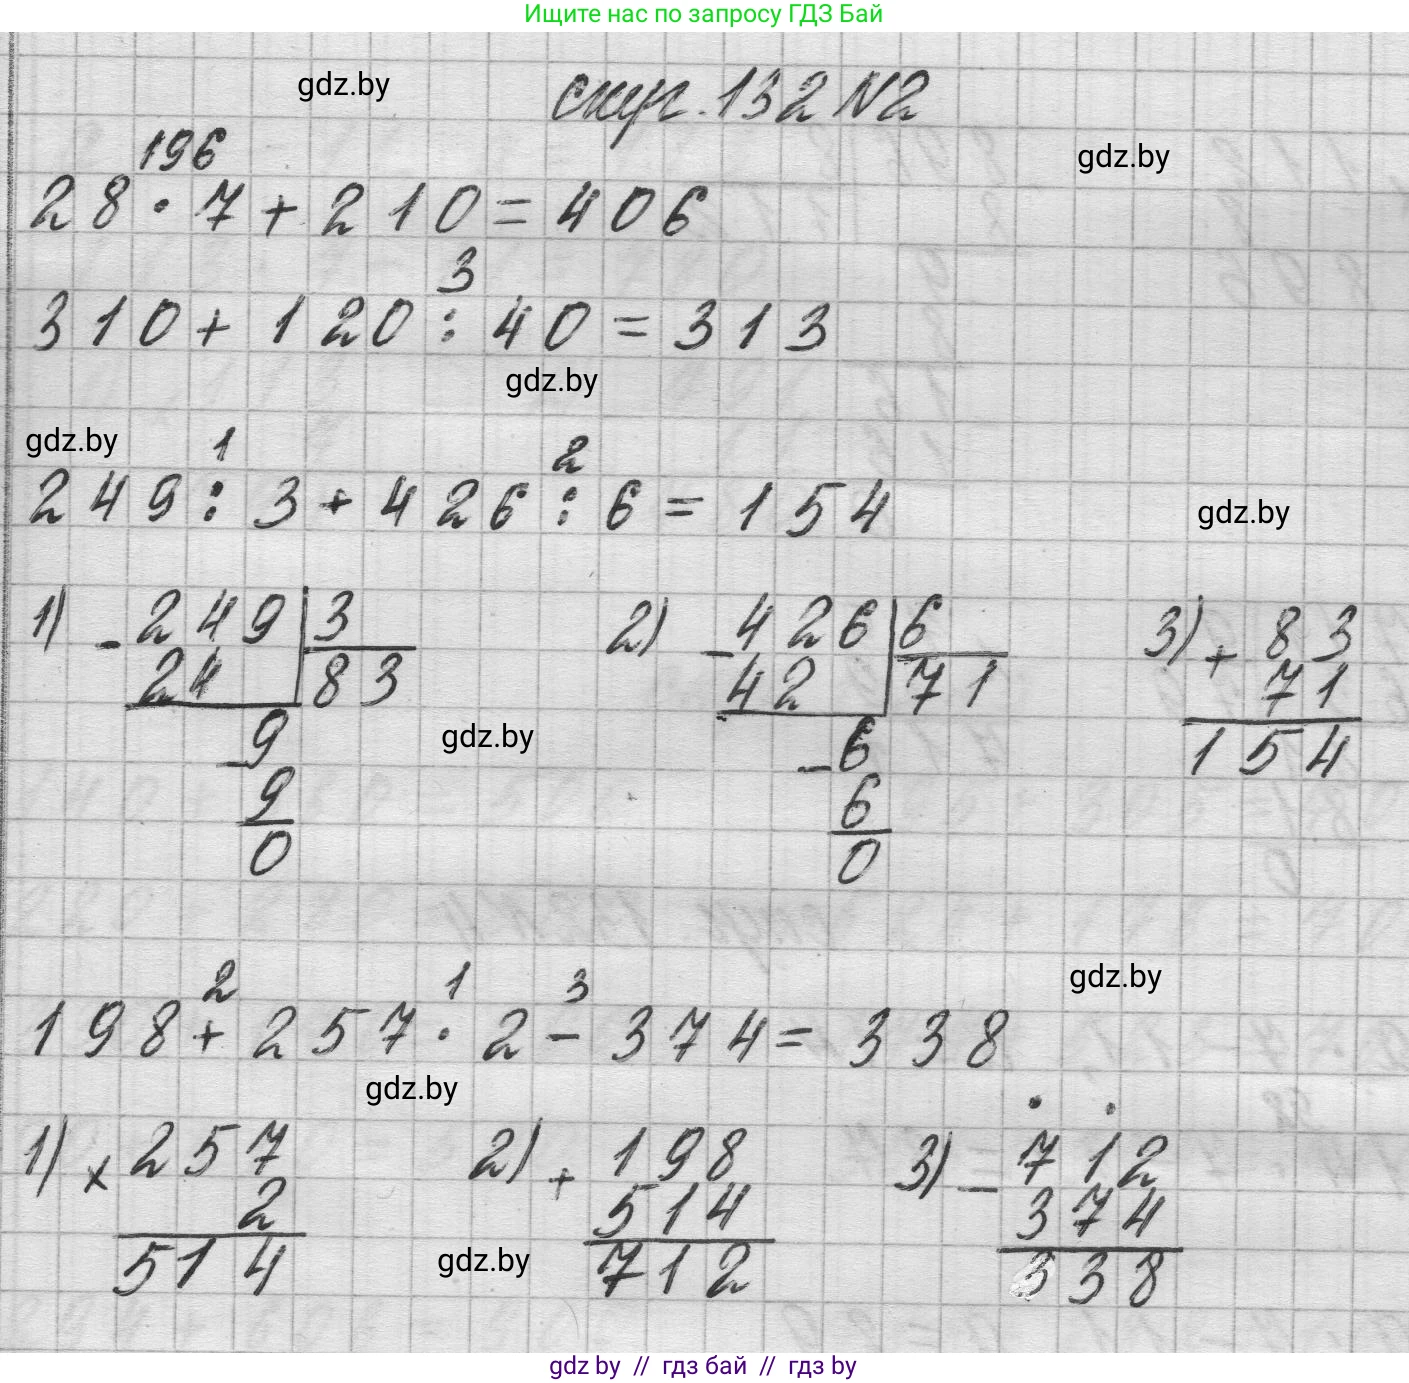 Ищите нас по запросу ГДЗ Бай
gdz.by
стр. 132 N2
gdz.by
196
28 · 7 + 210 = 406
3
310 + 120 : 40 = 313
gdz.by
gdz.by
1 2
249 : 3 + 426 : 6 = 154
gdz.by
1) - 249 | 3 2) - 426 | 6 3) + 83
24 83 42 71 71
- 9 - 6 154
gdz.by
9 6
0 0
gdz.by
2 1 3
198 + 257 · 2 - 374 = 338
gdz.by
1) × 257 2) + 198 3) - 712
2 514 374
514 712 338
gdz.by
gdz by // гдз бай // гдз by